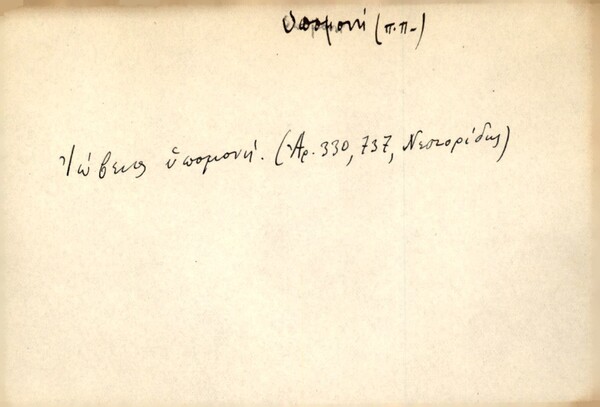 Ὑπομονή (π.π.)
Ἰώβεια ὑπομονή. (Ἀρ. 330, 737, Νεστορίδης)